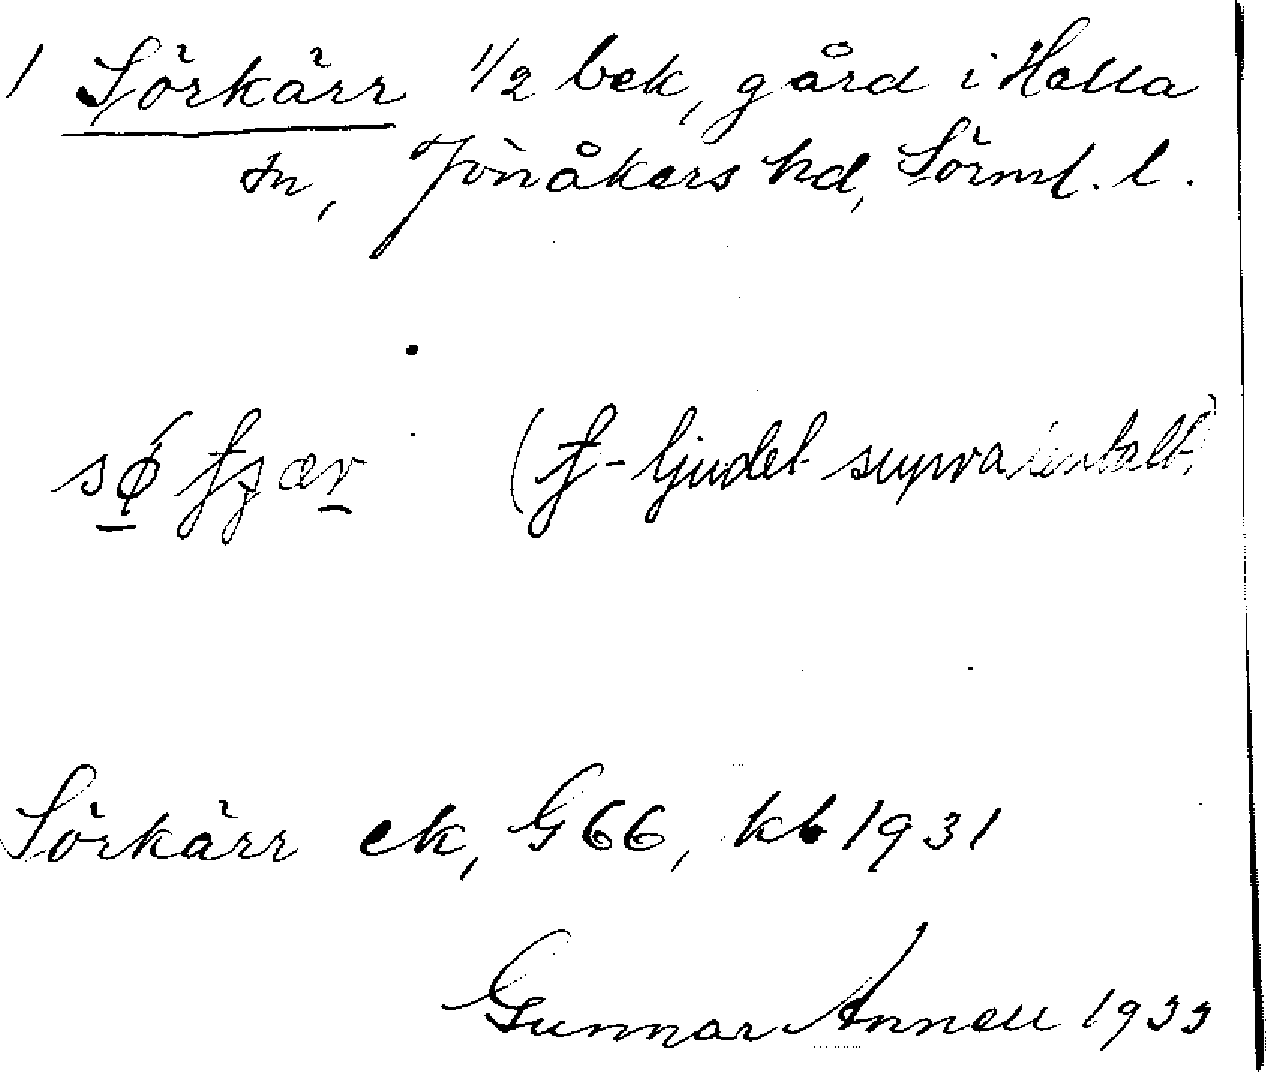 1 Sörkärr 1/2 bek, gård i Halla
sn, Jönåkers hd, Sörml. l.
(ʃ-ljudet supradentalt)
Sörkärr ek, G66, kb 1931
Gunnar Annell 1933